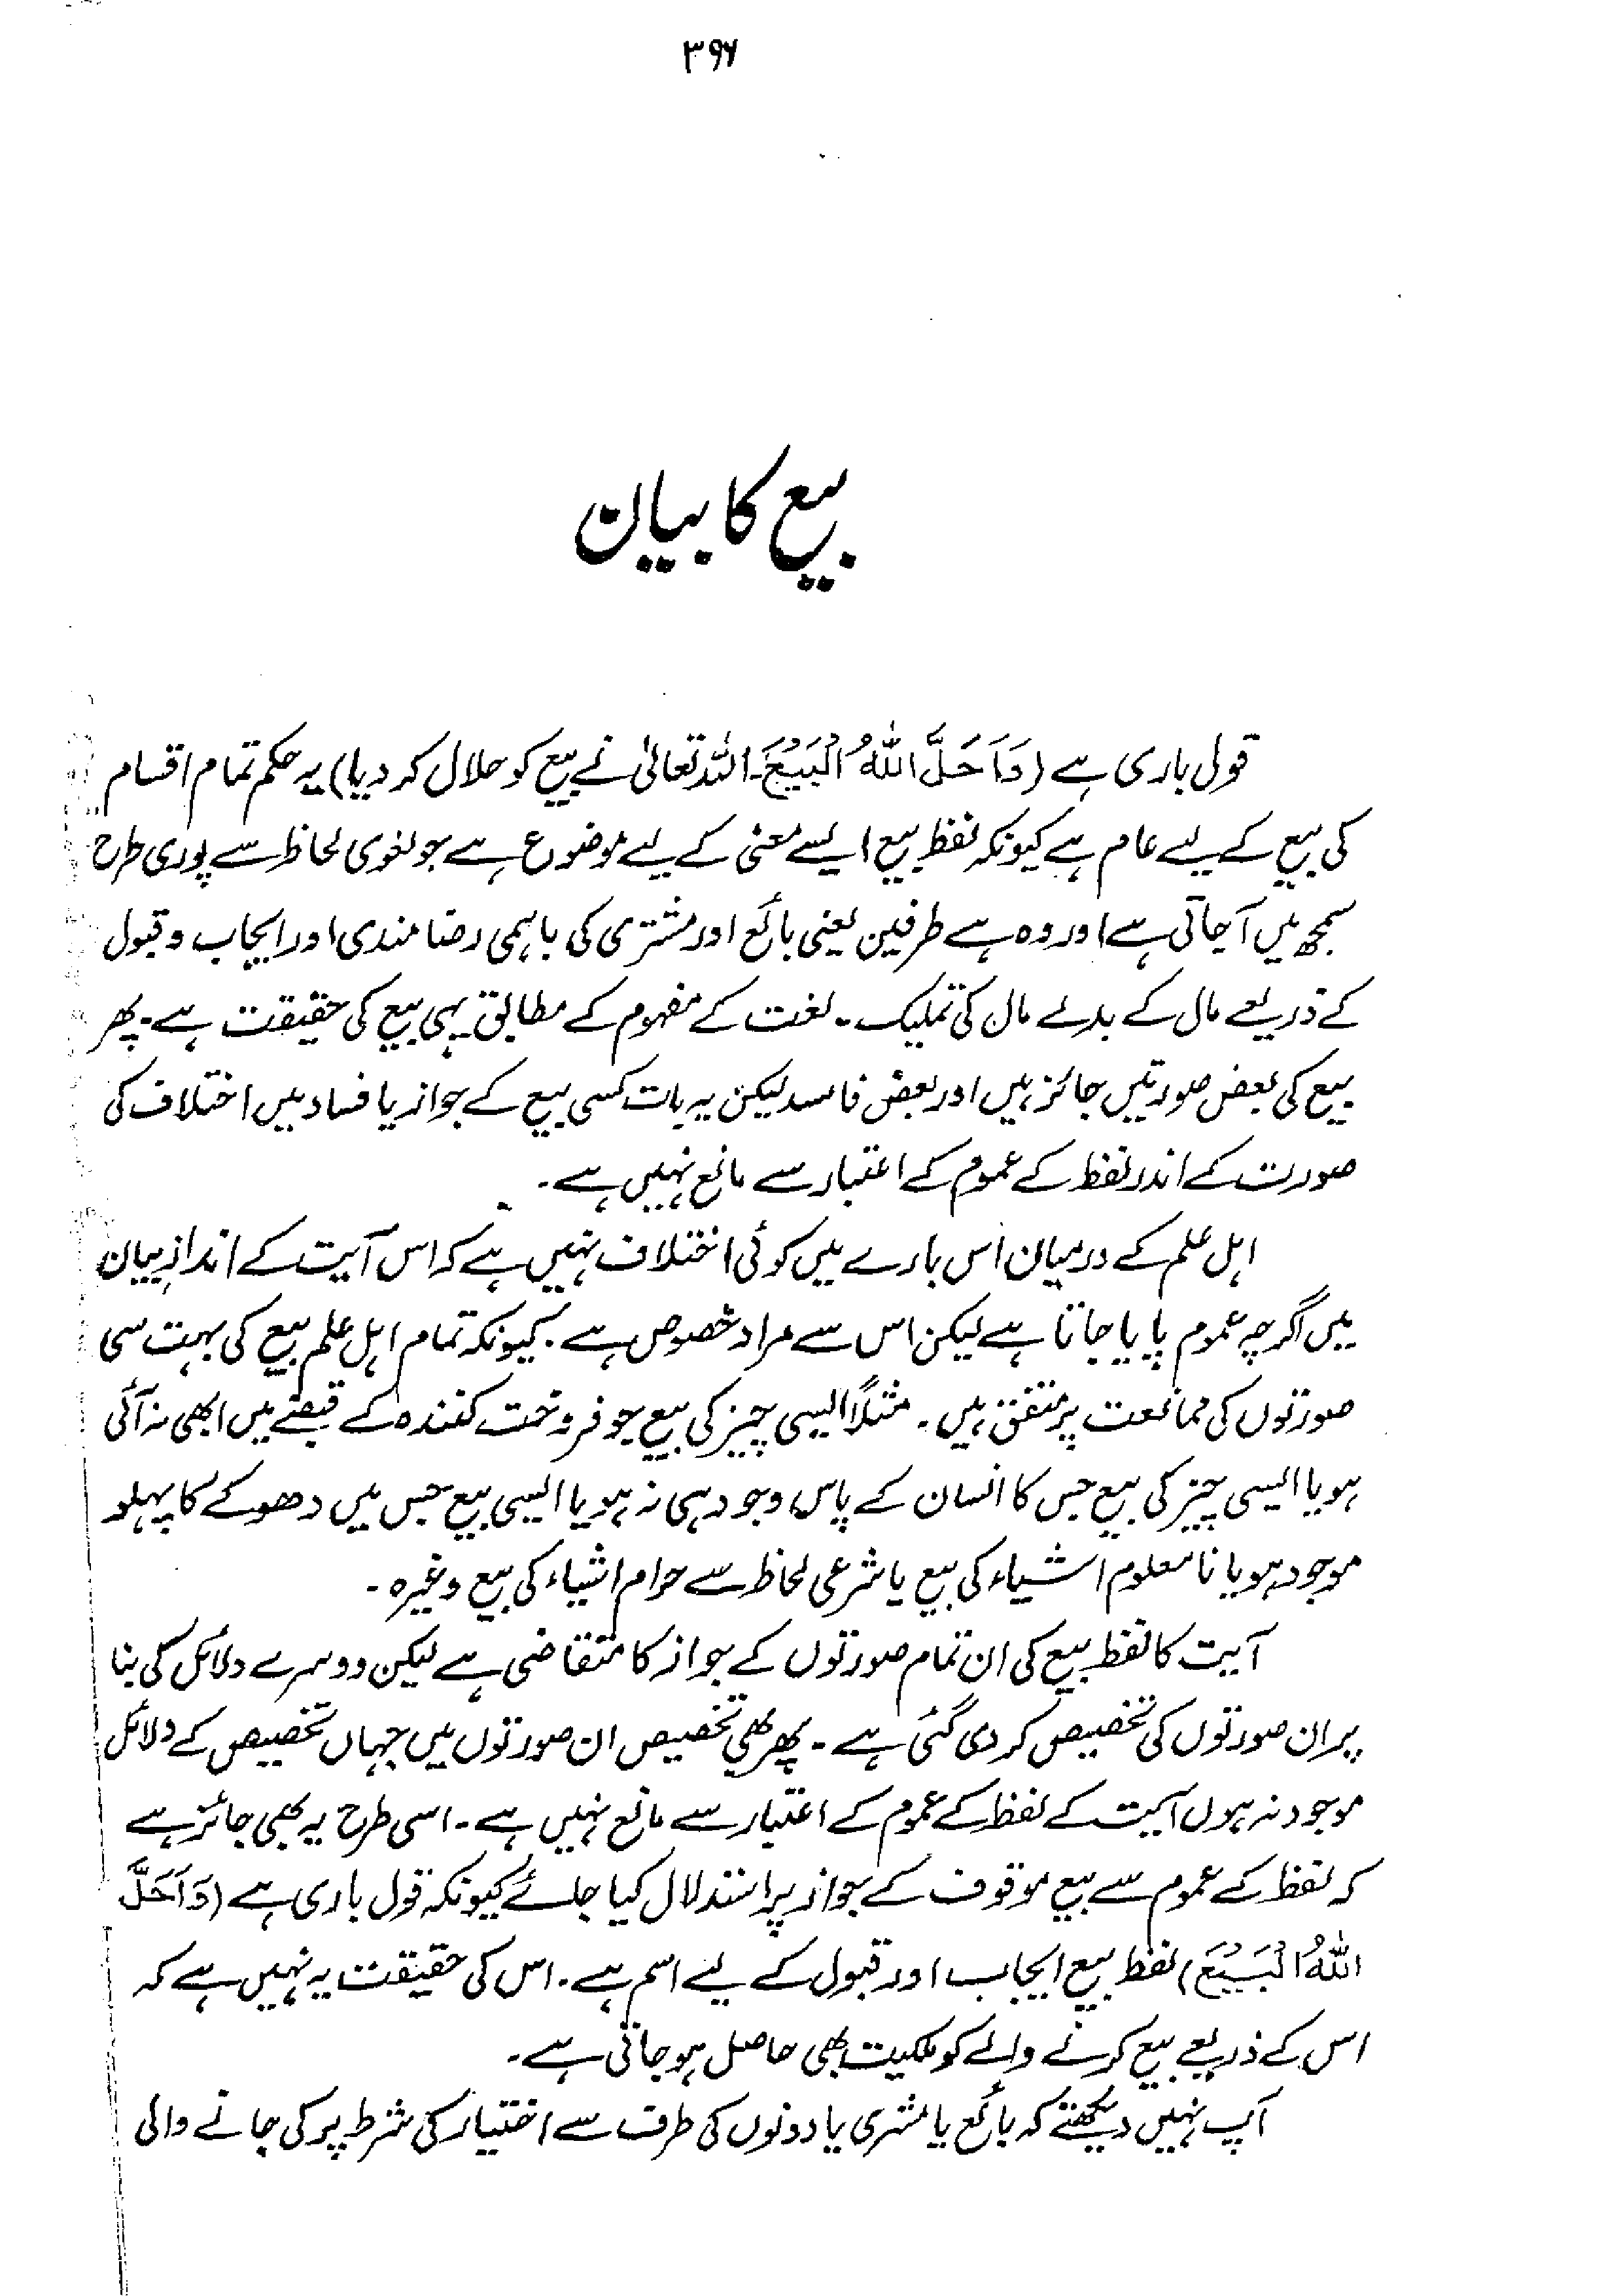 ۳۹۶
بیع کا بیان
قول باری ہے (وَاَحَلَّ اللّٰهُ الْبَيْعَ۔ اللہ تعالیٰ نے بیع کو حلال کر دیا) یہ حکم تمام اقسام
کی بیع کے لیے عام ہے کیونکہ لفظ بیع ایسے معنی کے لیے موضوع ہے جو لغوی لحاظ سے پوری طرح
سمجھ میں آجاتی ہے اور وہ ہے طرفین یعنی بائع اور مشتری کی باہمی رضا مندی اور ایجاب و قبول
کے ذریعے مال کے بدلے مال کی تملیک۔ لغت کے مفہوم کے مطابق یہی بیع کی حقیقت ہے۔ پھر
بیع کی بعض صورتیں جائز ہیں اور بعض فاسد لیکن یہ بات کسی بیع کے جواز یا فساد میں اختلاف کی
صورت کے اندر لفظ کے عموم کے اعتبار سے مانع نہیں ہے۔
اہل علم کے درمیان اس بارے میں کوئی اختلاف نہیں ہے کہ اس آیت کے اندازِ بیان
میں اگرچہ عموم پایا جاتا ہے لیکن اس سے مراد خصوص ہے۔ کیونکہ تمام اہل علم بیع کی بہت سی
صورتوں کی ممانعت پر متفق ہیں۔ مثلاً ایسی چیز کی بیع جو فروخت کنندہ کے قبضے میں ابھی نہ آئی
ہو یا ایسی چیز کی بیع جس کا انسان کے پاس وجود ہی نہ ہو یا ایسی بیع جس میں دھوکے کا پہلو
موجود ہو یا نا معلوم اشیاء کی بیع یا شرعی لحاظ سے حرام اشیاء کی بیع وغیرہ۔
آیت کا لفظ بیع کی ان تمام صورتوں کے جواز کا متقاضی ہے لیکن دوسرے دلائل کی بنا
پر ان صورتوں کی تخصیص کر دی گئی ہے۔ پھر بھی تخصیص ان صورتوں میں جہاں تخصیص کے دلائل
موجود نہ ہوں آیت کے لفظ کے عموم کے اعتبار سے مانع نہیں ہے۔ اسی طرح یہ بھی جائز ہے
کہ لفظ کے عموم سے بیع موقوف کے جواز پر استدلال کیا جائے کیونکہ قول باری ہے (وَاَحَلَّ
اللّٰهُ الْبَيْعَ) لفظ بیع ایجاب اور قبول کے لیے اسم ہے۔ اس کی حقیقت یہ نہیں ہے کہ
اس کے ذریعے بیع کرنے والے کو ملکیت بھی حاصل ہو جاتی ہے۔
آپ نہیں دیکھتے کہ بائع یا مشتری یا دونوں کی طرف سے اختیار کی شرط پر کی جانے والی